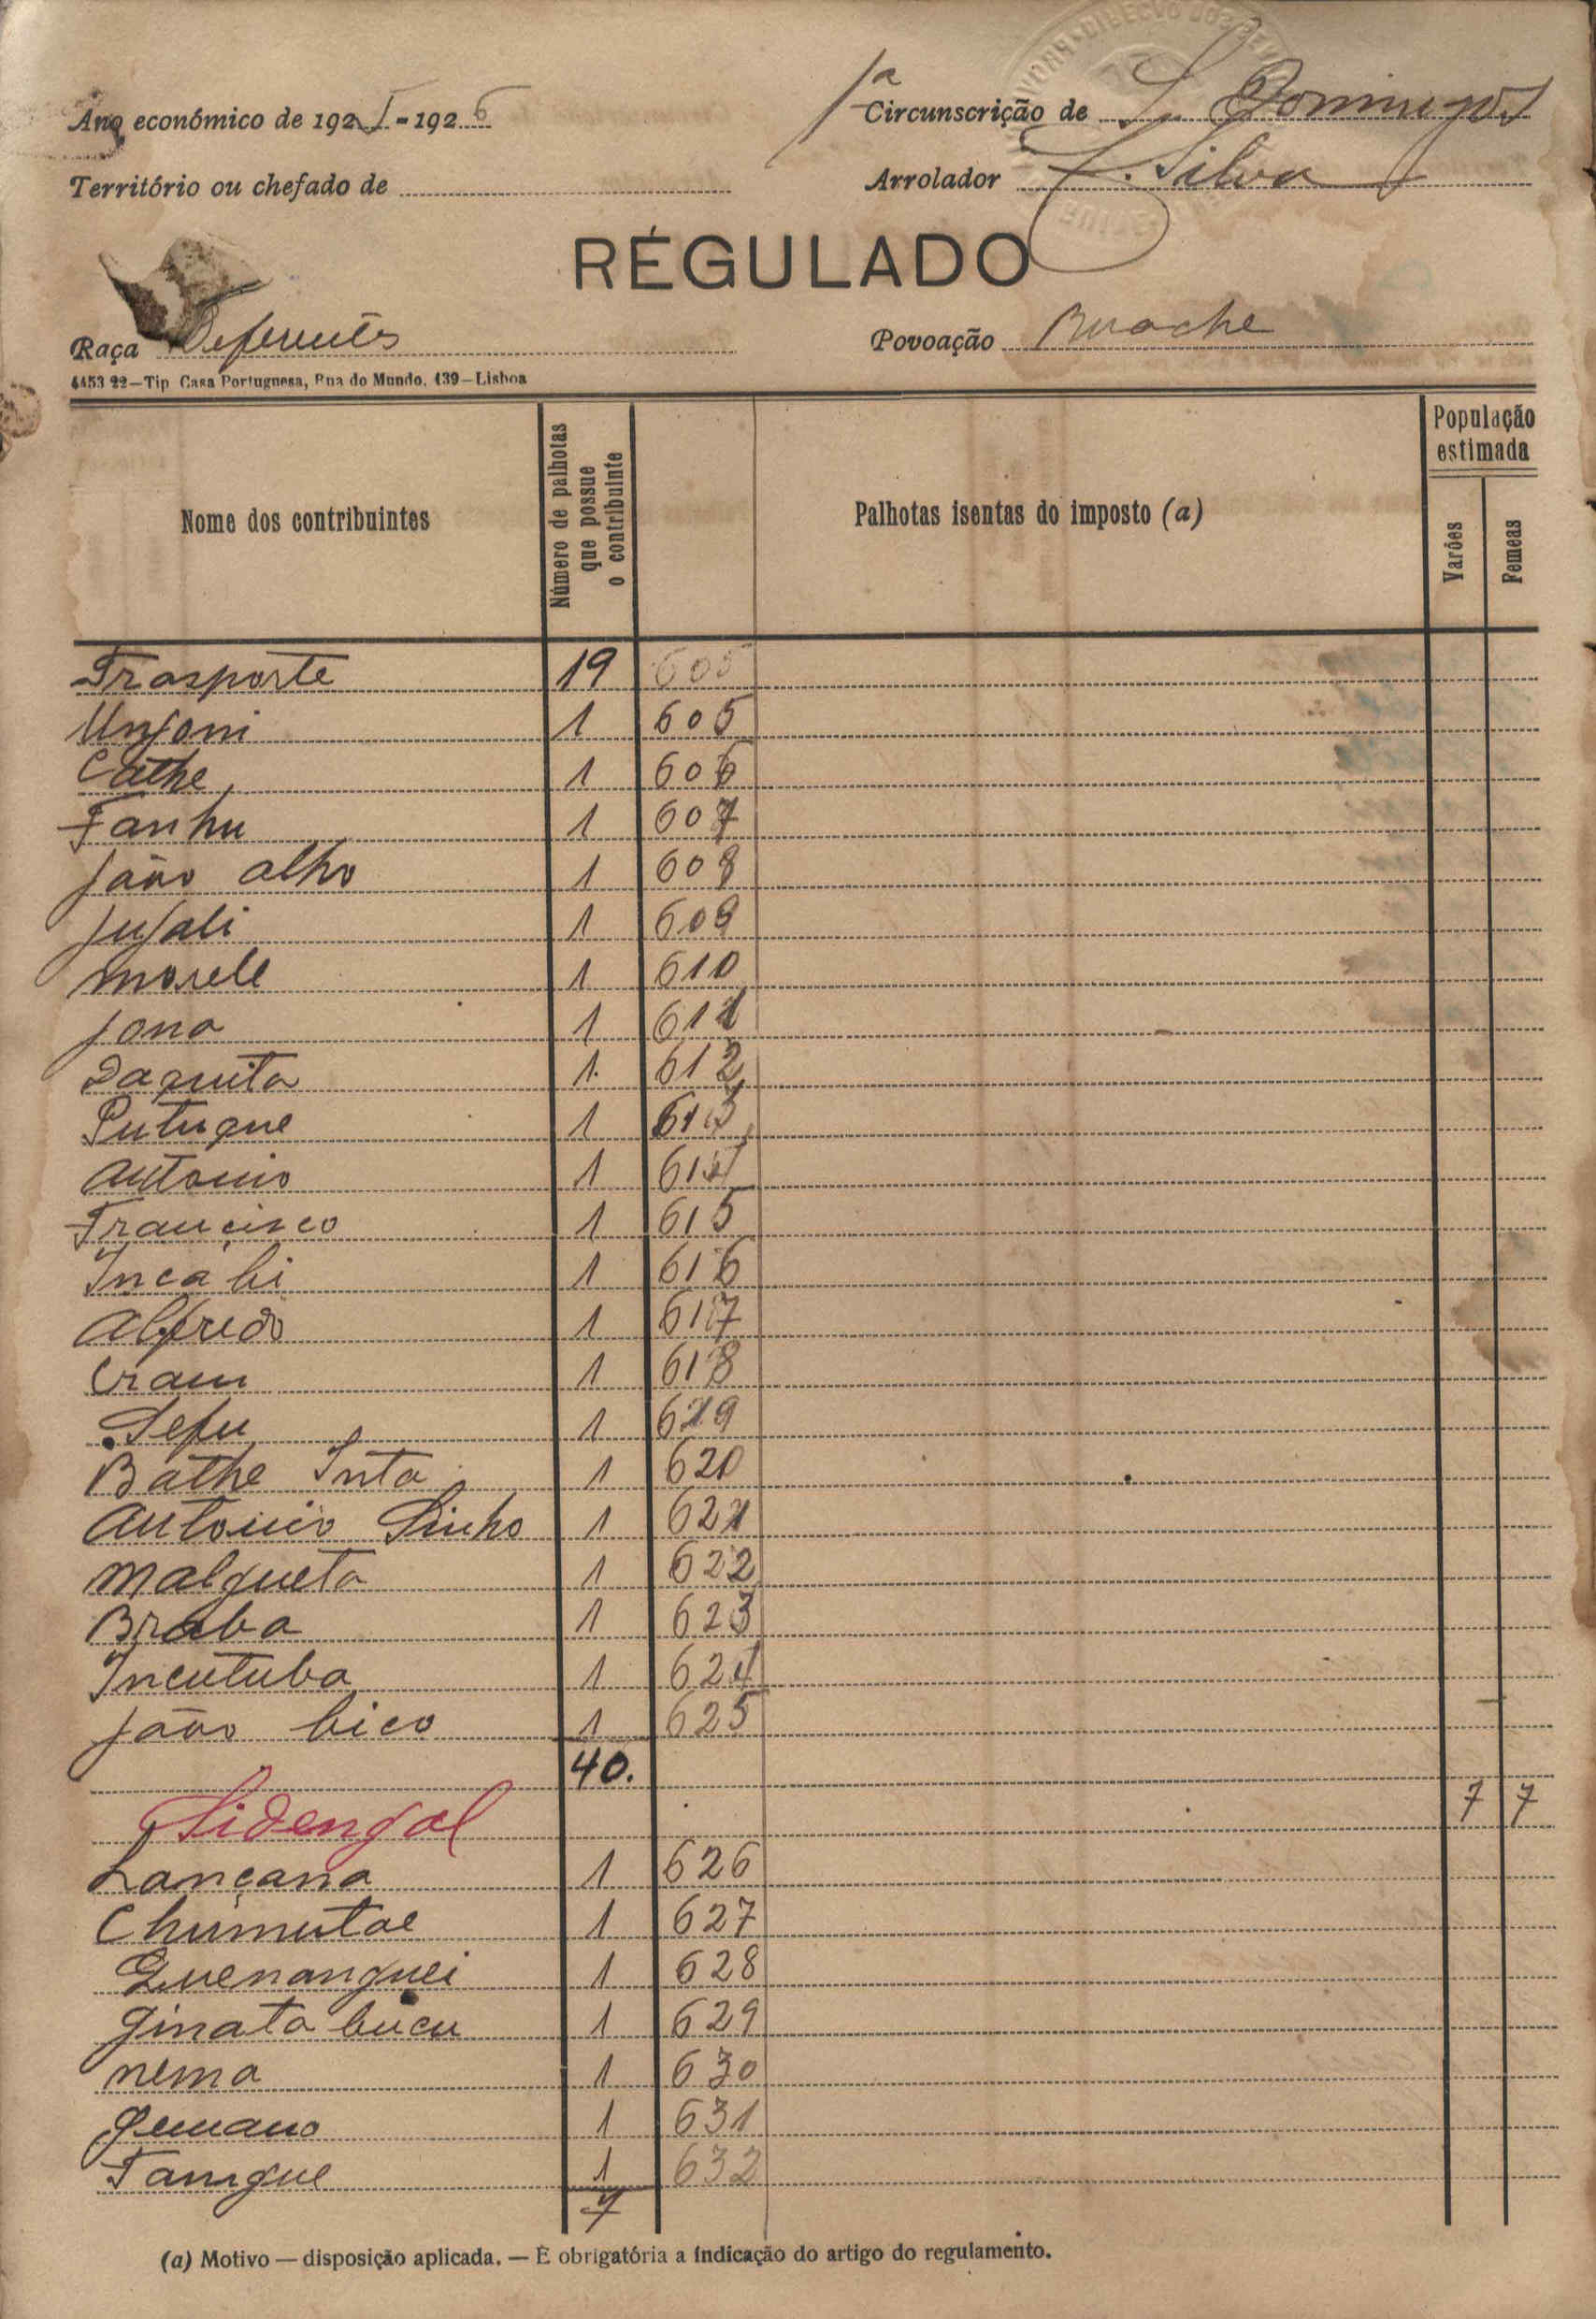 Ano económico de 1925-1926
1ª Circunscrição de S. Domingos
Território ou chefado de
Arrolador S. Silva
RÉGULADO
Raça Deferentes
Povoação Buoche
4453 22—Tip Casa Portuguesa, Rua do Mundo, 139—Lisboa
Nome dos contribuintes
Número de palhotas que possue o contribuinte
Palhotas isentas do imposto (a)
População estimada
Varões
Femeas
Trasporte 19 605
Unfoni 1 605
Cathe 1 606
Fanhu 1 607
João alho 1 608
Jufali 1 609
Morele 1 610
Jona 1 611
Daquita 1. 612
Putuque 1 613
Antonio 1 614
Francisco 1 615
Incabi 1 616
Alfredo 1 617
Cram 1 618
Sefu 1 619
Bathe Inta 1 620
Antonio Pinho 1 621
Malgueta 1 622
Braba 1 623
Incutuba 1 624
João bico 1 625
40.
Sidengal 7 7
Lançana 1 626
Chumutae 1 627
Quenanguei 1 628
Ginata bucu 1 629
Nema 1 630
Gemano 1 631
Tamgue 1 632
7
(a) Motivo — disposição aplicada. — É obrigatória a indicação do artigo do regulamento.